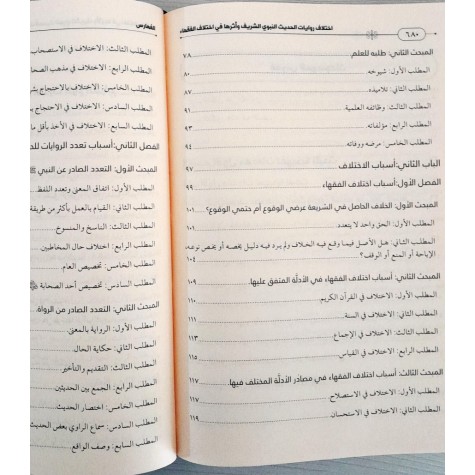 ٦٨٠
اختلاف روايات الحديث النبوي الشريف وأثرها في اختلاف الفقهاء
المبحث الثاني: طلبه للعلم ٧٨
المطلب الأول: شيوخه ٨٠
المطلب الثاني: تلاميذه ٨٧
المطلب الثالث: وظائفه العلمية ٩١
المطلب الرابع: مؤلفاته ٩٣
المطلب الخامس: مرضه ووفاته ٩٤
الباب الثاني: أسباب الاختلاف ٩٧
الفصل الأول: أسباب اختلاف الفقهاء ٩٩
المبحث الأول: الخلاف الحاصل في الشريعة عرضي الوقوع أم حتمي الوقوع؟ ١٠١
المطلب الأول: الحق واحد لا يتعدد. ١٠١
المطلب الثاني: هل الأصل فيما وقع فيه الخلاف ولم يرد فيه دليل يخصه أو يخص نوعه،
الإباحة أو المنع أو الوقف؟
المبحث الثاني: أسباب اختلاف الفقهاء في الأدلّة المتفق عليها. ١٠٩
المطلب الأول: الاختلاف في القرآن الكريم ١١٠
المطلب الثاني: الاختلاف في السنة ١١١
المطلب الثالث: الاختلاف في الإجماع ١١٣
المطلب الرابع: الاختلاف في القياس ١١٥
المبحث الثالث: أسباب اختلاف الفقهاء في مصادر الأدلّة المختلف فيها. ١١٧
المطلب الأول: الاختلاف في الاستصلاح ١١٧
المطلب الثاني: الاختلاف في الاستحسان ١١٩
الفهارس
المطلب الثالث: الاختلاف في الاستصحاب
المطلب الرابع: الاختلاف في مذهب
المطلب الخامس: الاختلاف بالاحتجاج
المطلب السادس: الاختلاف في الاحتجاج
المطلب السابع: الاختلاف في الأخذ بأقل
الفصل الثاني: أسباب تعدد الروايات
المبحث الأول: التعدد الصادر عن النبي ﷺ
المطلب الأول: اتفاق المعنى وتعدد اللفظ
المطلب الثاني: القيام بالعمل بأكثر من طريقة
المطلب الثالث: الناسخ والمنسوخ
المطلب الرابع: اختلاف حال المخاطبين
المطلب الخامس: تخصيص العام
المطلب السادس: تخصيص أحد الصحابة
المبحث الثاني: التعدد الصادر من الرواة.
المطلب الأول: الرواية بالمعنى
المطلب الثاني: حكاية الحال
المطلب الثالث: التقديم والتأخير
المطلب الرابع: الجمع بين الحديثين
المطلب الخامس: اختصار الحديث
المطلب السادس: سماع الراوي بعض الحديث
المطلب السابع: وصف الواقع